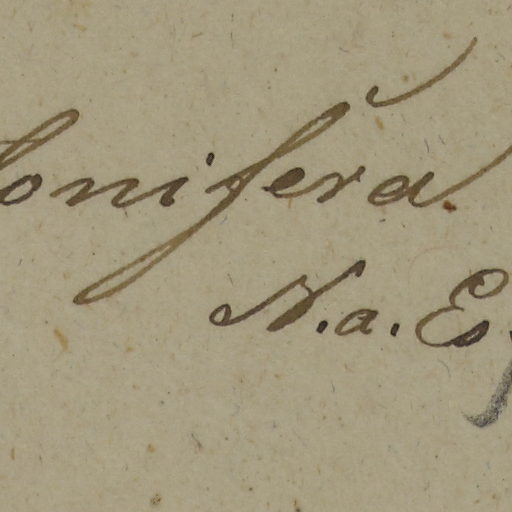 onifera
N.a. Es